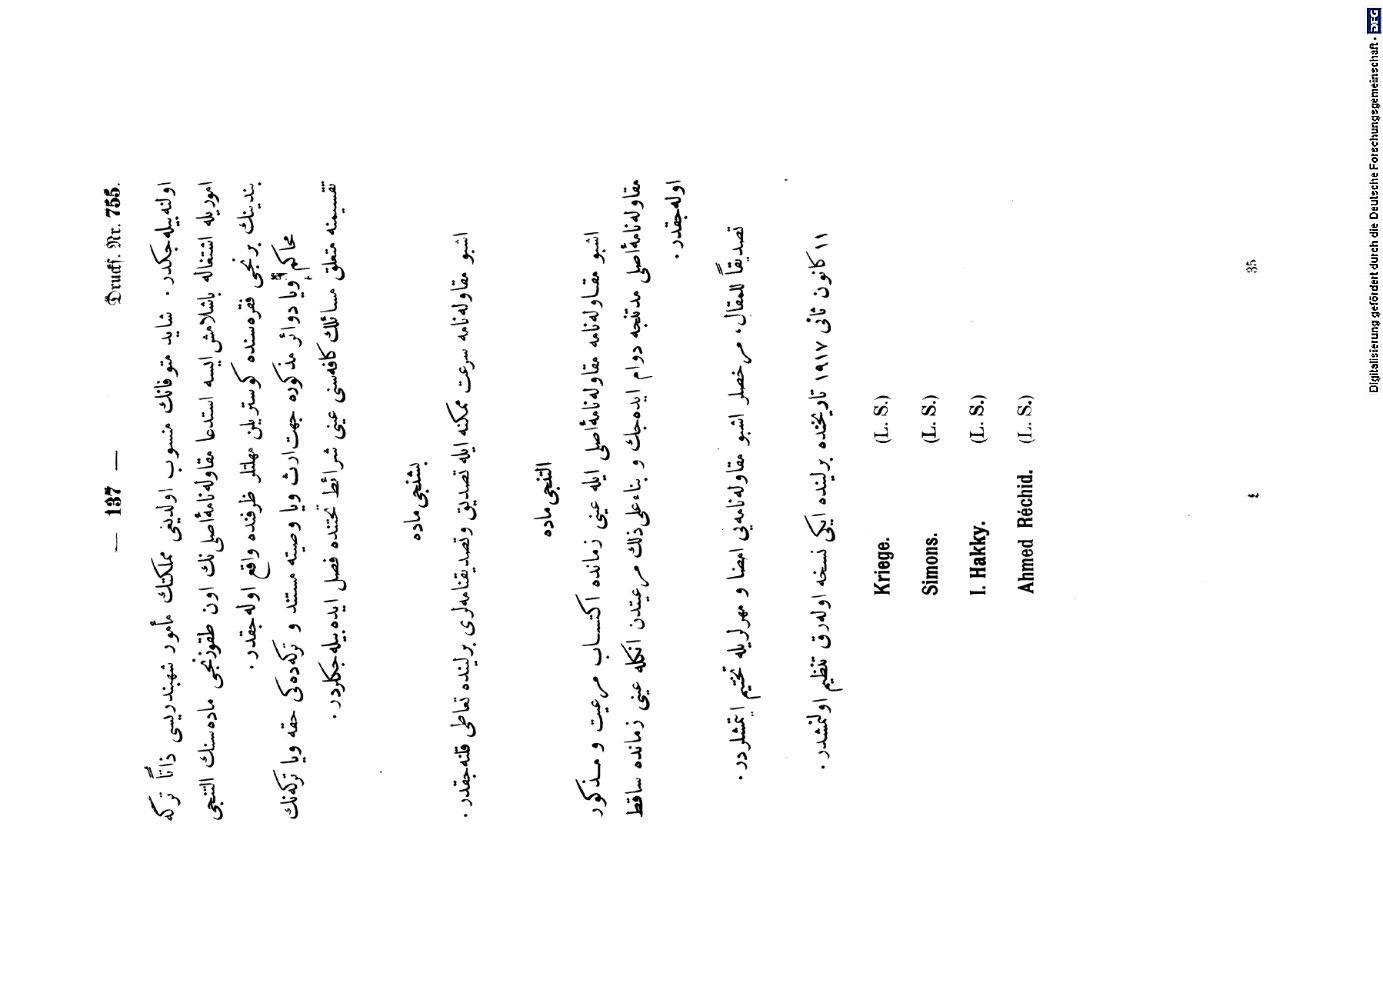 — 137 —
Drucks. Nr. 755.
اولنه‌بیله‌جكدر. شاید متوفانك منسوب اولدیغی مملكتك مأمور شهبندریسی ذاتاً تركه
اموریله اشتغاله باشلامش ایسه استدعا مقاوله‌نامۀ اصلی نك اون طقوزنجی ماده‌سنك التنجی
بندینك برنجی فقره‌سنده كوستریلن مهلتلر ظرفنده واقع اوله‌جقدر.
محاكم ویا دوائر مذكوره جهت ارث ویا وصیته مستند و تركه‌ده‌كی حقه ویا تركه‌نك
تقسیمنه متعلق مسائلك كافه‌سنی عینی شرائط تحتنده فصل ایده‌بیله‌جكلردر.
بشنجی ماده
اشبو مقاوله‌نامه سرعت ممكنه ایله تصدیق و تصدیقنامه‌لری برلینده تعاطی قلنه‌جقدر.
التنجی ماده
اشبو مقاوله‌نامه مقاوله‌نامۀ اصلی ایله عینی زمانده اكتساب مرعیت و مذكور
مقاوله‌نامۀ اصلی مدتنجه دوام ایده‌جك و بناءعلی‌ذلك مرعیتدن انكله عینی زمانده ساقط
اوله‌جقدر.
تصدیقاً للمقال، مرخصلر اشبو مقاوله‌نامه‌یی امضا و مهرلریله تختیم ایتمشلردر.
١١ كانون ثانی ١٩١٧ تاریخنده برلینده ایكی نسخه اوله‌رق تنظیم اولنمشدر.
Kriege. (L. S.)
Simons. (L. S.)
I. Hakky. (L. S.)
Ahmed Réchid. (L. S.)
35
Digitalisierung gefördert durch die Deutsche Forschungsgemeinschaft - DFG